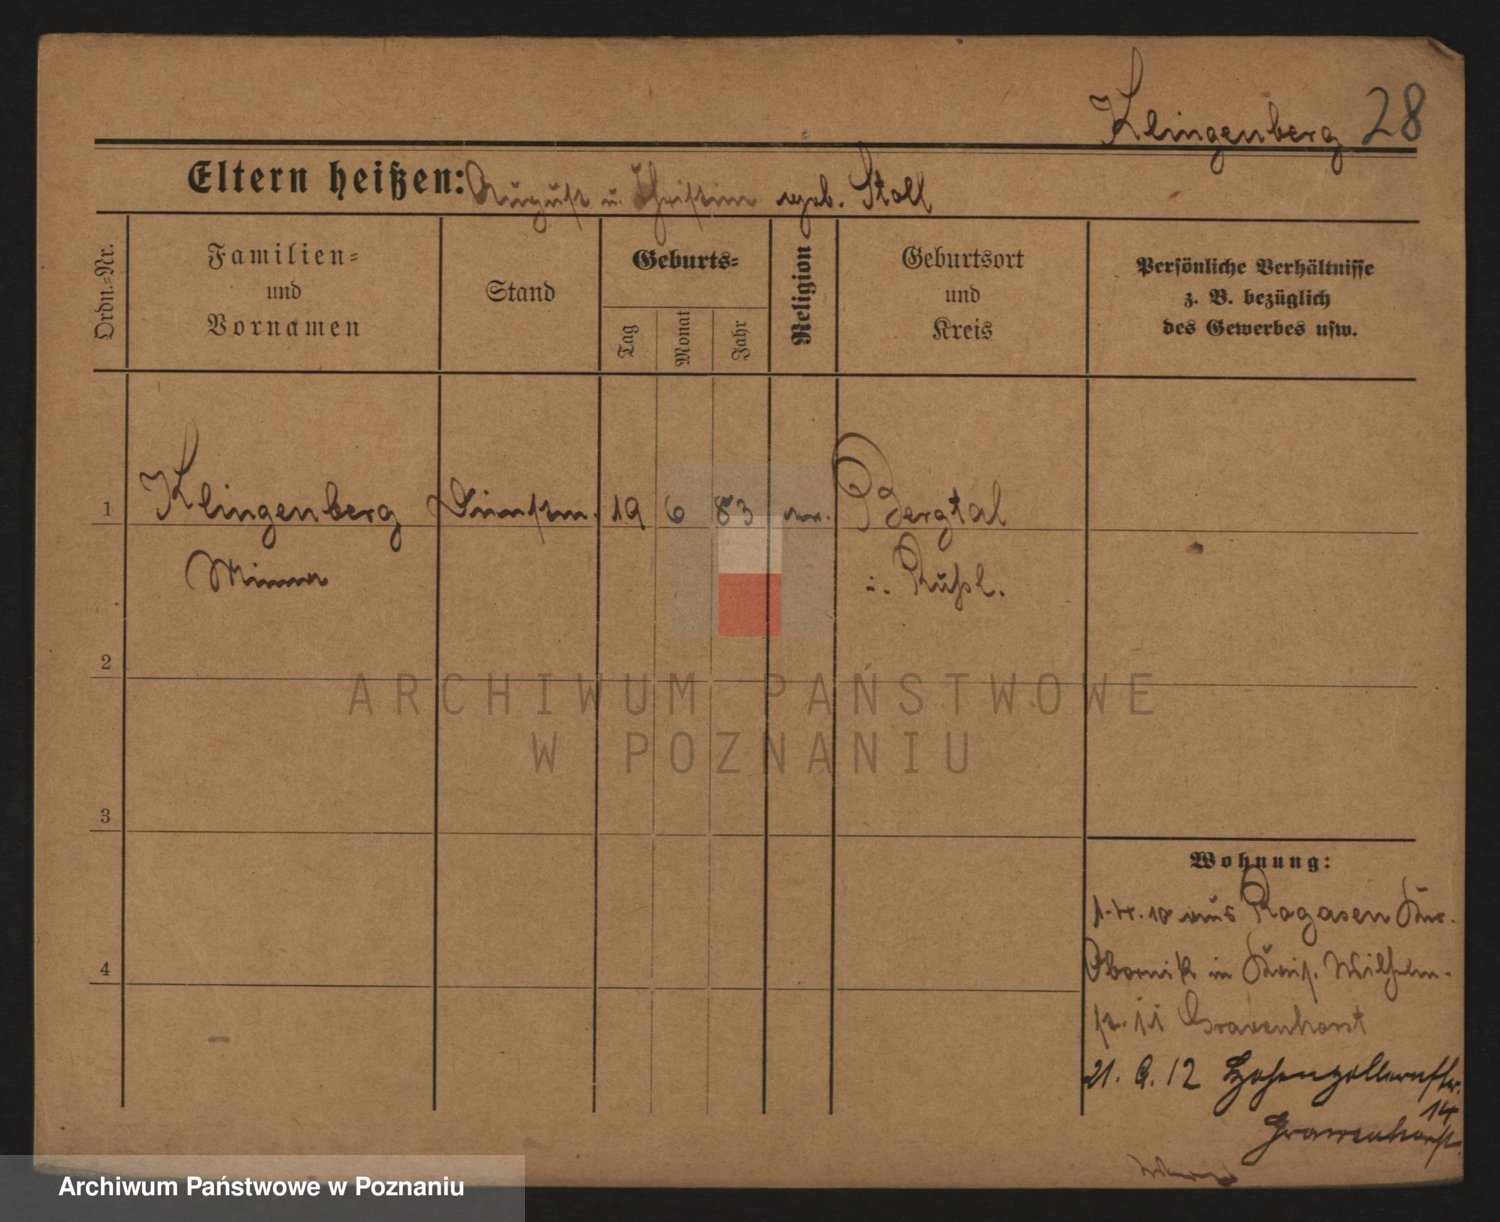 Klingenberg 28
Eltern heißen: August u. Christine geb. Stoll
Ordn.-Nr.
Familien-
und
Vornamen
Stand
Geburts-
Tag
Monat
Jahr
Religion
Geburtsort
und
Kreis
Persönliche Verhältnisse
z. B. bezüglich
des Gewerbes usw.
1 Klingenberg Dienstm. 19 6 83 ev. Bergtal
Minna i. Rußl.
2
ARCHIWUM PAŃSTWOWE
W POZNANIU
3
Wohnung:
10 aus Rogasen Krs.
4
Obornik in Kais. Wilhelm-
str. 11 Gravenhorst
21. 9. 12 Hohenzollernstr.
14
Gravenhorst
Archiwum Państwowe w Poznaniu